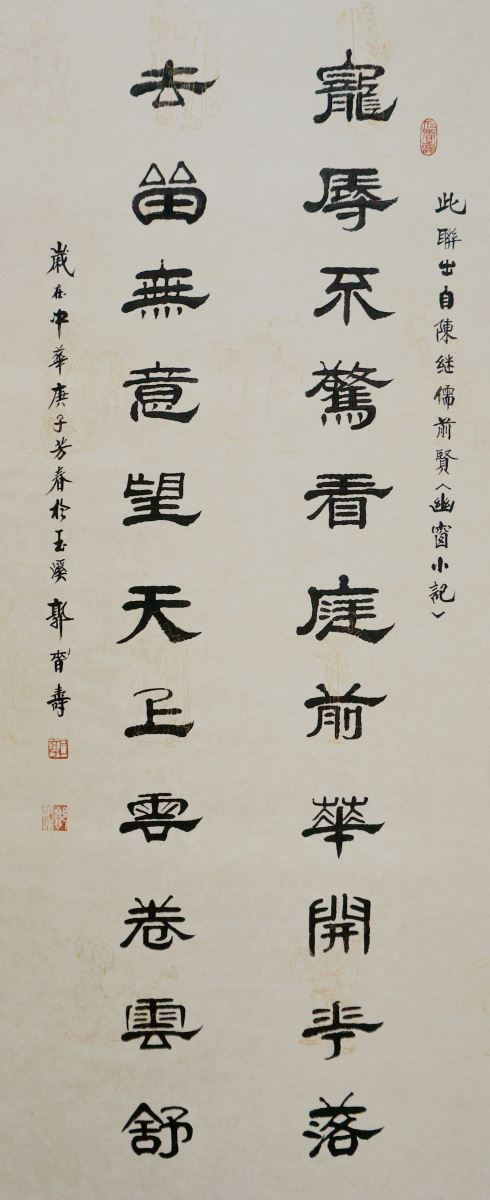 此聯出自陳继儒前賢〈幽窗小記〉
寵辱不驚看庭前華開花落
去畱無意望天上雲卷雲舒
歲在中華庚子芳春於玉溪 郭壽